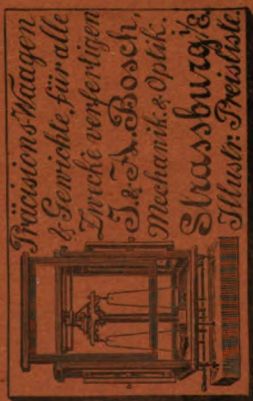 Präcisions-Waagen
& Gewichte für alle
Zwecke verfertigen
J. & A. Bosch,
Mechanik. & Optik.
Strassburg i/E.
Illustr. Preisliste.